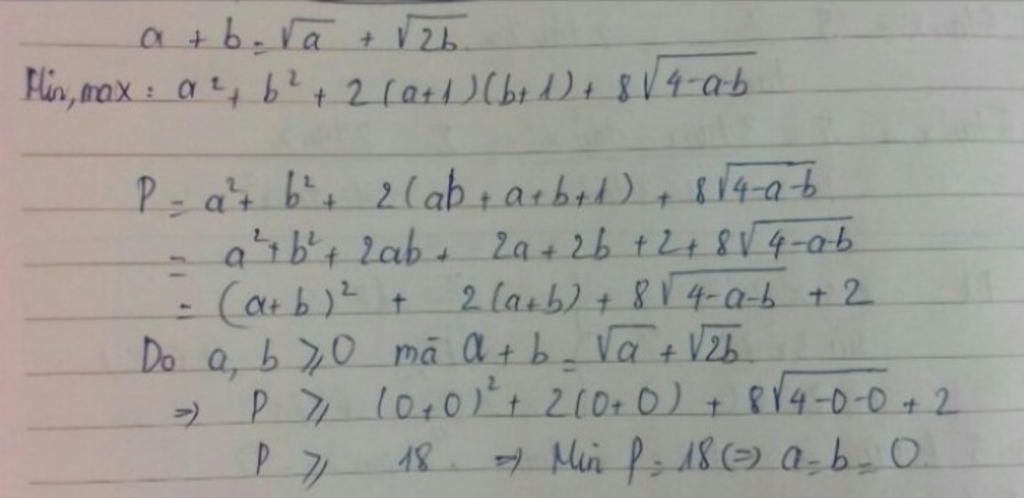 a + b = √a + √2b
Min, max : a² + b² + 2(a+1)(b+1) + 8√4-a-b
P = a² + b² + 2(ab + a + b + 1) + 8√4-a-b
= a² + b² + 2ab + 2a + 2b + 2 + 8√4-a-b
= (a+b)² + 2(a+b) + 8√4-a-b + 2
Do a, b ⩾ 0 mã a + b = √a + √2b
⇒ P ⩾ (0+0)² + 2(0+0) + 8√4-0-0 + 2
P ⩾ 18 ⇒ Min P = 18 (=) a = b = 0